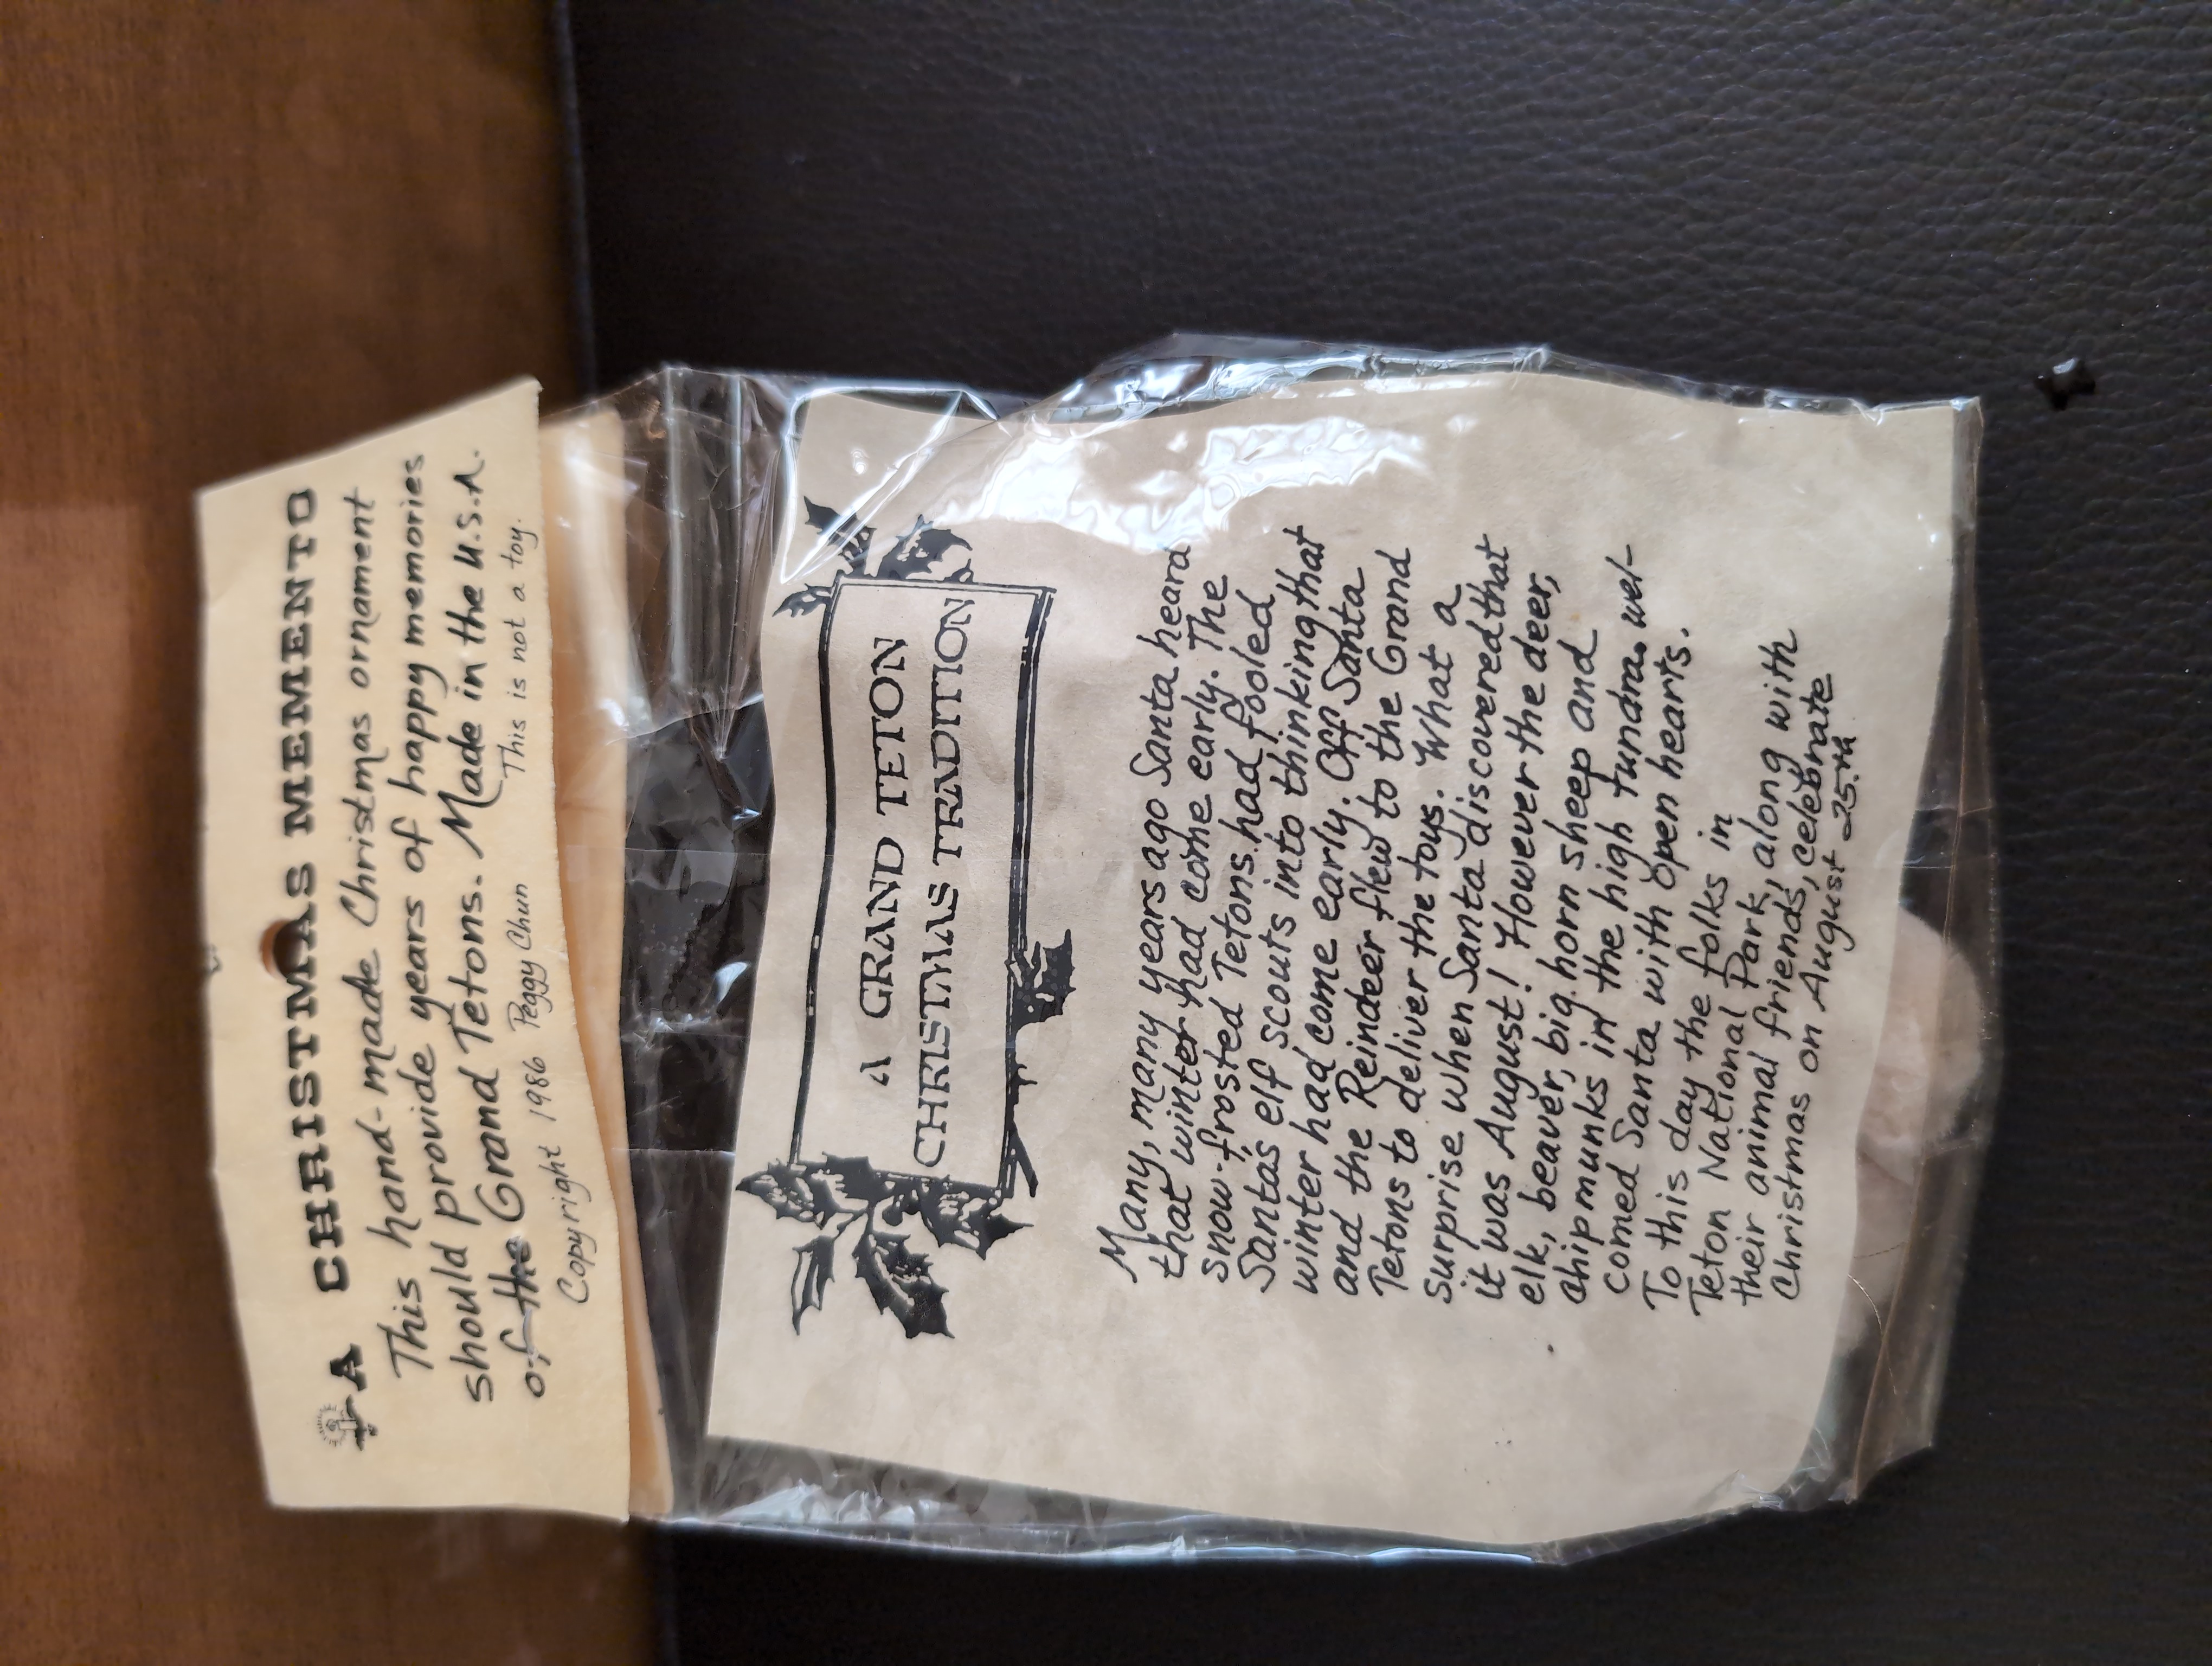 A CHRISTMAS MEMENTO
This hand-made Christmas ornament
should provide years of happy memories
of the Grand Tetons. Made in the U.S.A.
Copyright 1986 Peggy Chun This is not a toy.
A GRAND TETON
CHRISTMAS TRADITION
Many, many years ago Santa heard
that winter had come early. The
snow-frosted Tetons had fooled
Santas elf scouts into thinking that
winter had come early. Off Santa
and the Reindeer flew to the Grand
Tetons to deliver the toys. What a
surprise when Santa discovered that
it was August! However the deer,
elk, beaver, big horn sheep and
chipmunks in the high tundra wel-
comed Santa with open hearts.
To this day the folks in
Teton National Park, along with
their animal friends, celebrate
Christmas on August 25th